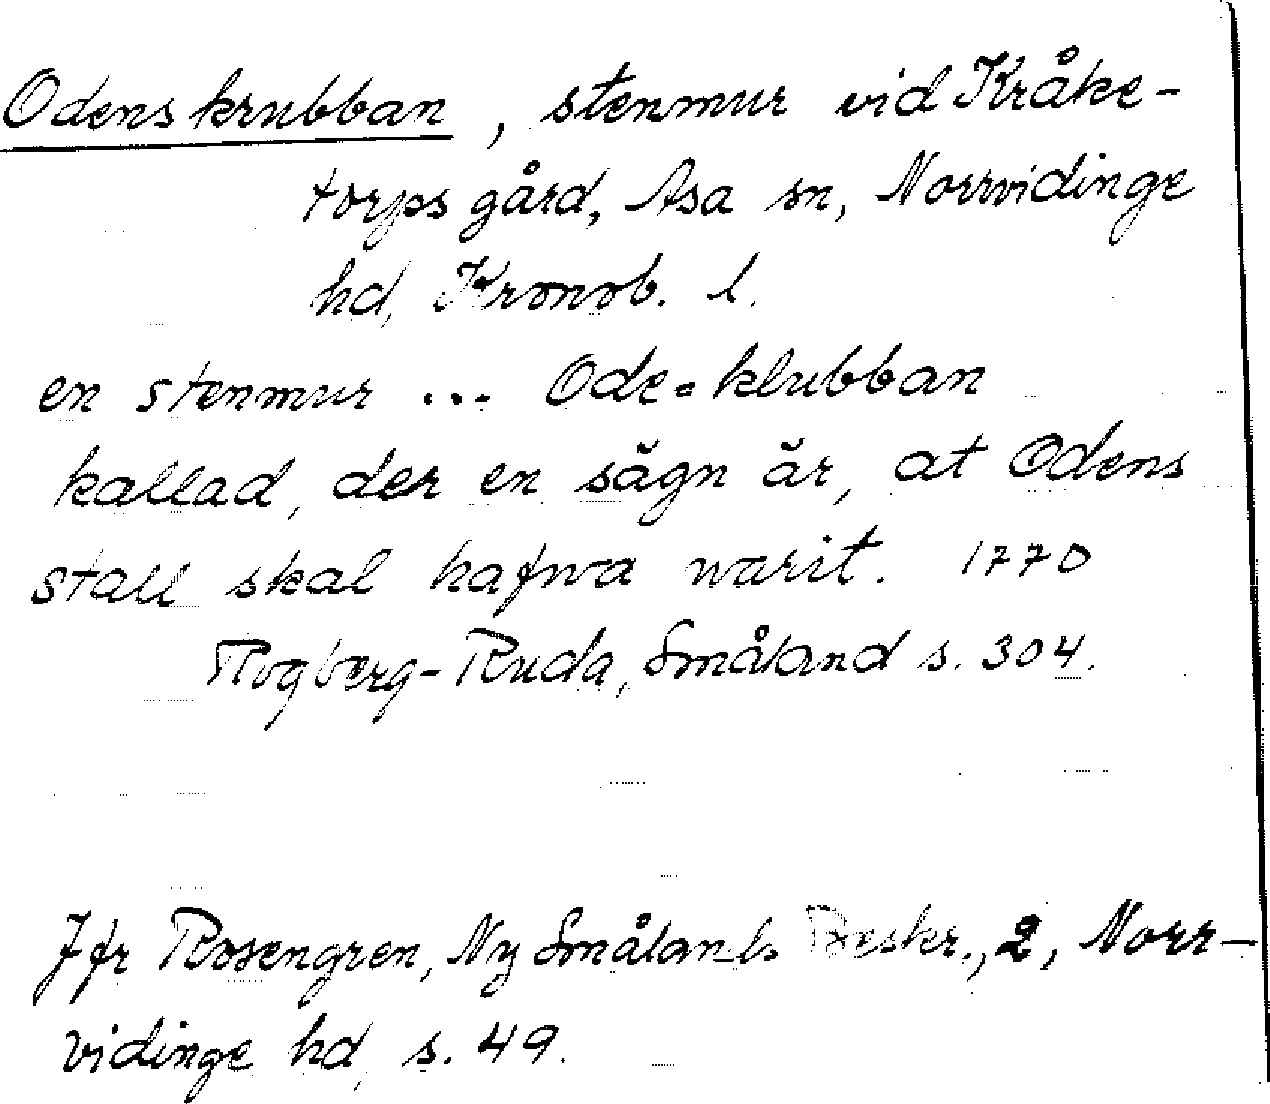 Odenskrubban, stenmur vid Kråke-
torps gård, Asa sn, Norrvidinge
hd, Kronob. l.
en stenmur ... Ode=klubban
kallad, der en sägn är, at Odens
stall skal hafwa warit. 1770
Rogberg-Ruda, Småland s. 304.
Jfr Rosengren, Ny Smålands Beskr., 2, Norr-
vidinge hd, s. 49.